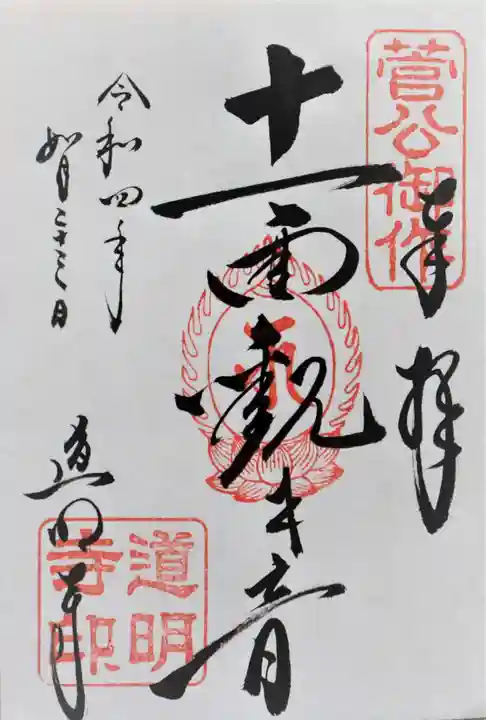 菅公御作
奉拝
十一面観世音
令和四年
如月二十三日
道明寺
道明寺印